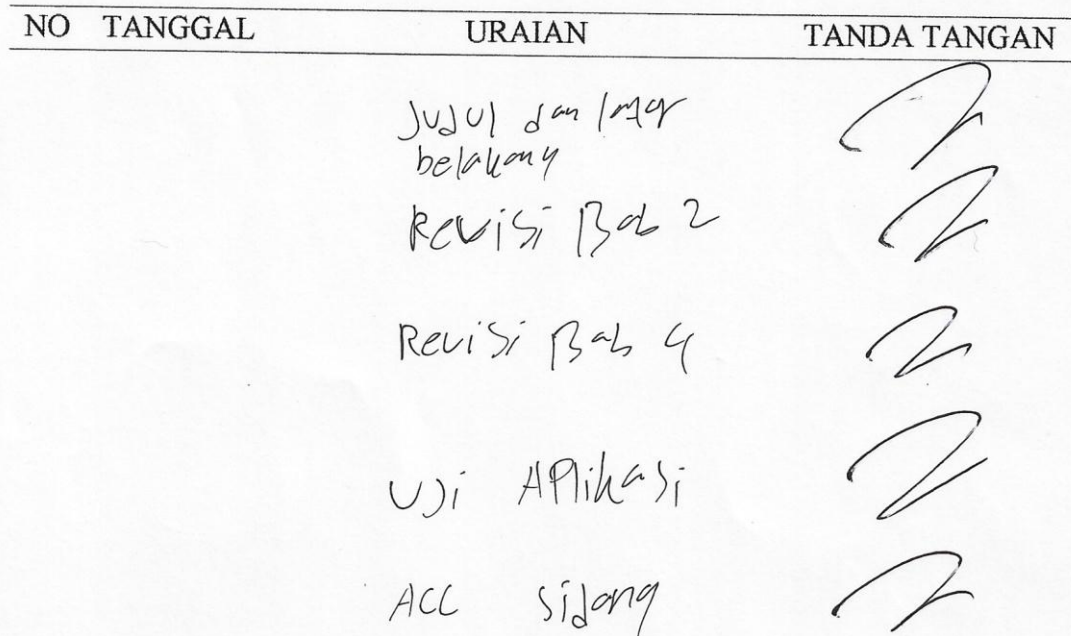 NO TANGGAL URAIAN TANDA TANGAN
Judul dan latar
belakang
Revisi Bab 2
Revisi Bab 4
Uji Aplikasi
ACC sidang